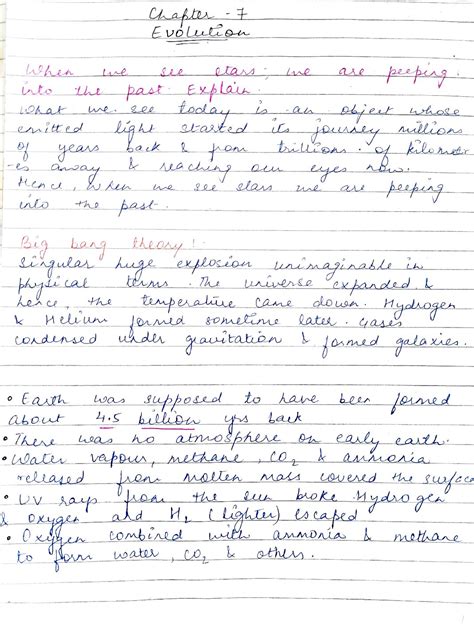 Chapter - 7
Evolution
When we see stars, we are peeping
into the past. Explain.
What we see today is an object whose
emitted light started its journey millions
of years back & from trillions of kilometr-
es away & reaching our eyes now.
Hence, when we see stars we are peeping
into the past.
Big bang theory :
Singular huge explosion unimaginable in
physical terms. The universe expanded &
hence, the temperature came down. Hydrogen
& Helium formed sometime later. Gases
condensed under gravitation & formed galaxies.
• Earth was supposed to have been formed
about 4.5 billion yrs back
• There was no atmosphere on early earth.
• Water vapour, methane, CO2 & ammonia
released from molten mass covered the surface
• UV rays from the sun broke Hydrogen
& Oxygen and H2 (lighter) escaped
• Oxygen combined with ammonia & methane
to form water, CO2 & others.